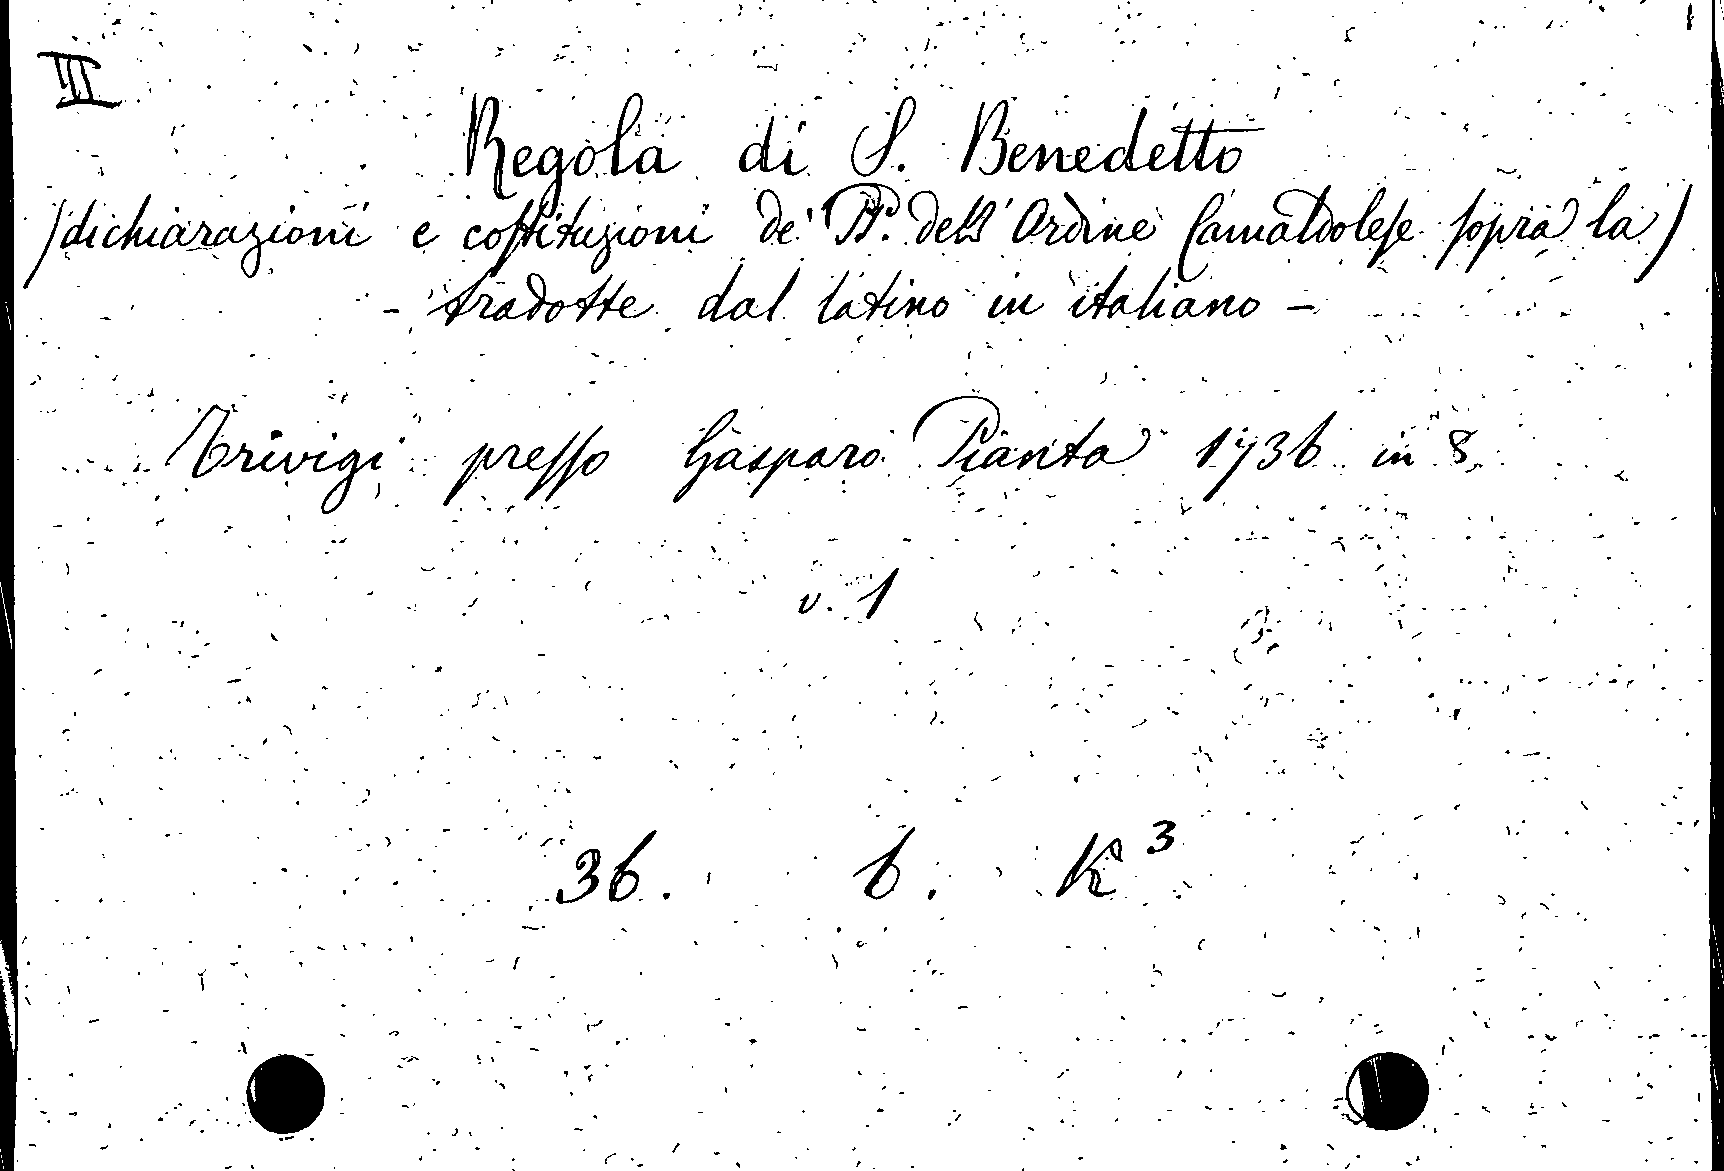 III
Regola di S. Benedetto
/dichiarazioni e costituzioni de' PP. dell' Ordine Camaldolese sopra la/
- tradotte dal latino in italiano -
Trivigi presso Gasparo Pianta 1736 in 8.
v. 1
36. 6. K³